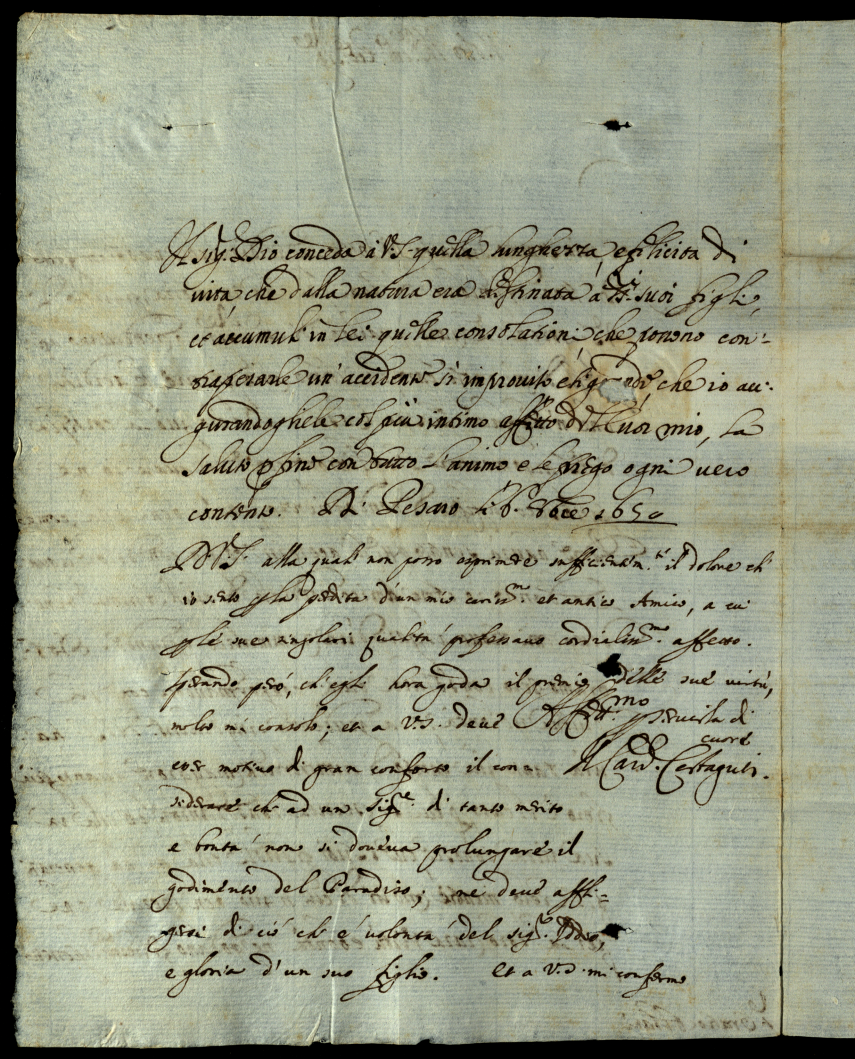 Il sig.r Dio conceda à V.S. quella lunghezza, e felicità di
vita che dalla natura era destinata à suoi figli,
et accumuli in lei quelle consolationi, che ponno con-
trapesarle un' accidente sì improviso, et grande, che io au-
gurandoglele col più intimo affetto del Cuor mio, la
saluto p fine con tutto l'animo e le prego ogni vero
contento. Di Pesaro li 6. 8bre 1650
D. V.S. alla quale non posso esprimere sufficientem.te il dolore ch'
io sento p la perdita d'un mio cariss.mo et antico Amico, a cui
p le sue singolari qualità professavo cordialiss.mo affetto.
sperando però, ch'egli hora goda il premio delle sue virtù,
molto mi consolo; et a V.S. deve
Aff.mo p servirla di
cuore
esser motivo di gran conforto il con-
Il Card. Costaguti.
siderare che ad un sig.re di tanto merito
e bontà non si doveva prolungare il
godimento del Paradiso; ne deve affli-
gersi di ciò ch' è volontà del sig.re Iddio,
e gloria d'un suo figlio. et a V.S. mi confermo